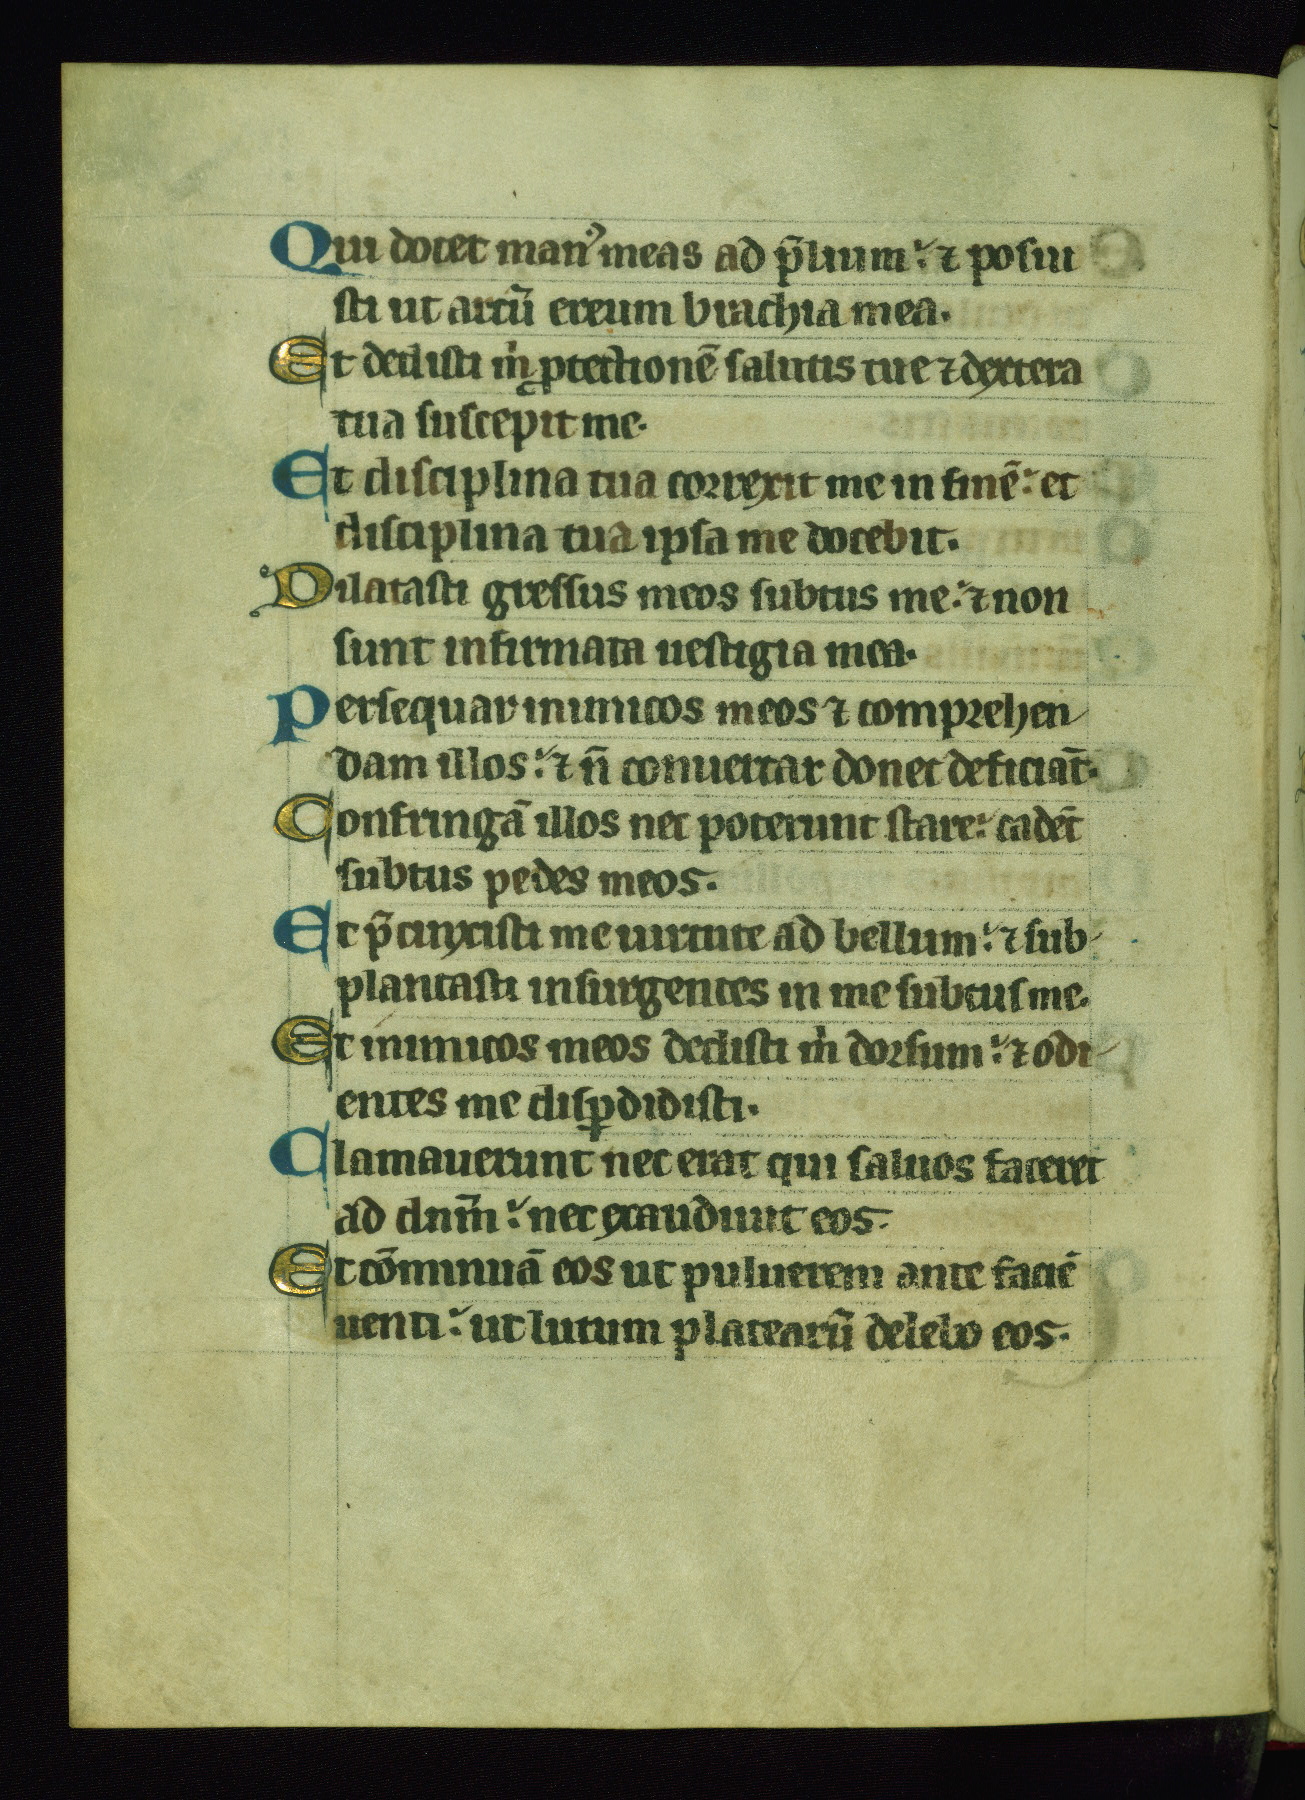 Qui docet man᾿ meas ad p̄lium ⁊ posui
sti ut arcū ereum brachia mea.
Et dedisti m̄ ꝓtectionē salutis tue ⁊ dextera
tua suscepit me.
Et disciplina tua correxit me in finē et
disciplina tua ipsa me docebit.
Dilatasti gressus meos subtus me ⁊ non
sunt infirmata uestigia mea.
Persequar inimicos meos ⁊ comprehen
dam illos ⁊ n̄ conuertar donec deficiāt.
Confringā illos nec poterunt stare cadēt
subtus pedes meos.
Et p̄cinxisti me uirtute ad bellum ⁊ sub
plantasti insurgentes in me subtus me.
Et inimicos meos dedisti m̄ dorsum ⁊ odi
entes me disꝑdidisti.
Clamauerunt nec erat qui saluos faceret
ad dnm̄ nec exaudiuit eos.
Et cōminuā eos ut puluerem ante faciē
uenti ut lutum platearū delebo eos.